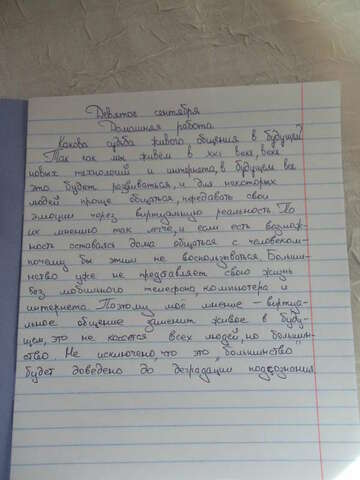 Девятое сентября
Домашняя работа
Какова судьба живого общения в будущем?
Так как мы живем в XXI веке, веке
новых технологий и интернета, в будущем все
это будет развиваться, и для некоторых
людей проще общаться, передавать свои
эмоции через виртуальную реальность. По
их мнению так легче, и если есть возмож-
ность оставаясь дома общаться с человеком-
почему бы этим не воспользоваться. Больши-
нство уже не представляет свою жизнь
без мобильного телефона, компьютера и
интернета. Поэтому моё мнение - виртуа-
льное общение заменит живое в буду-
щем, это не касается всех людей, но большин-
ство. Не исключено, что это "большинство"
будет доведено до деградации подсознания.